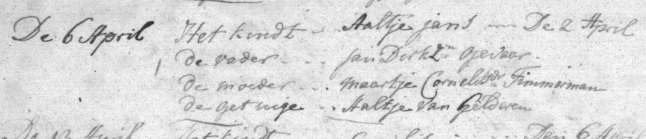 De 6 April Het kindt - Aaltje jans - De 2 April
de vader - - - jan Dirkz
de moeder - - maartje Cornelisdr Timmerman
de getuige - - Aaltje van Gelderen